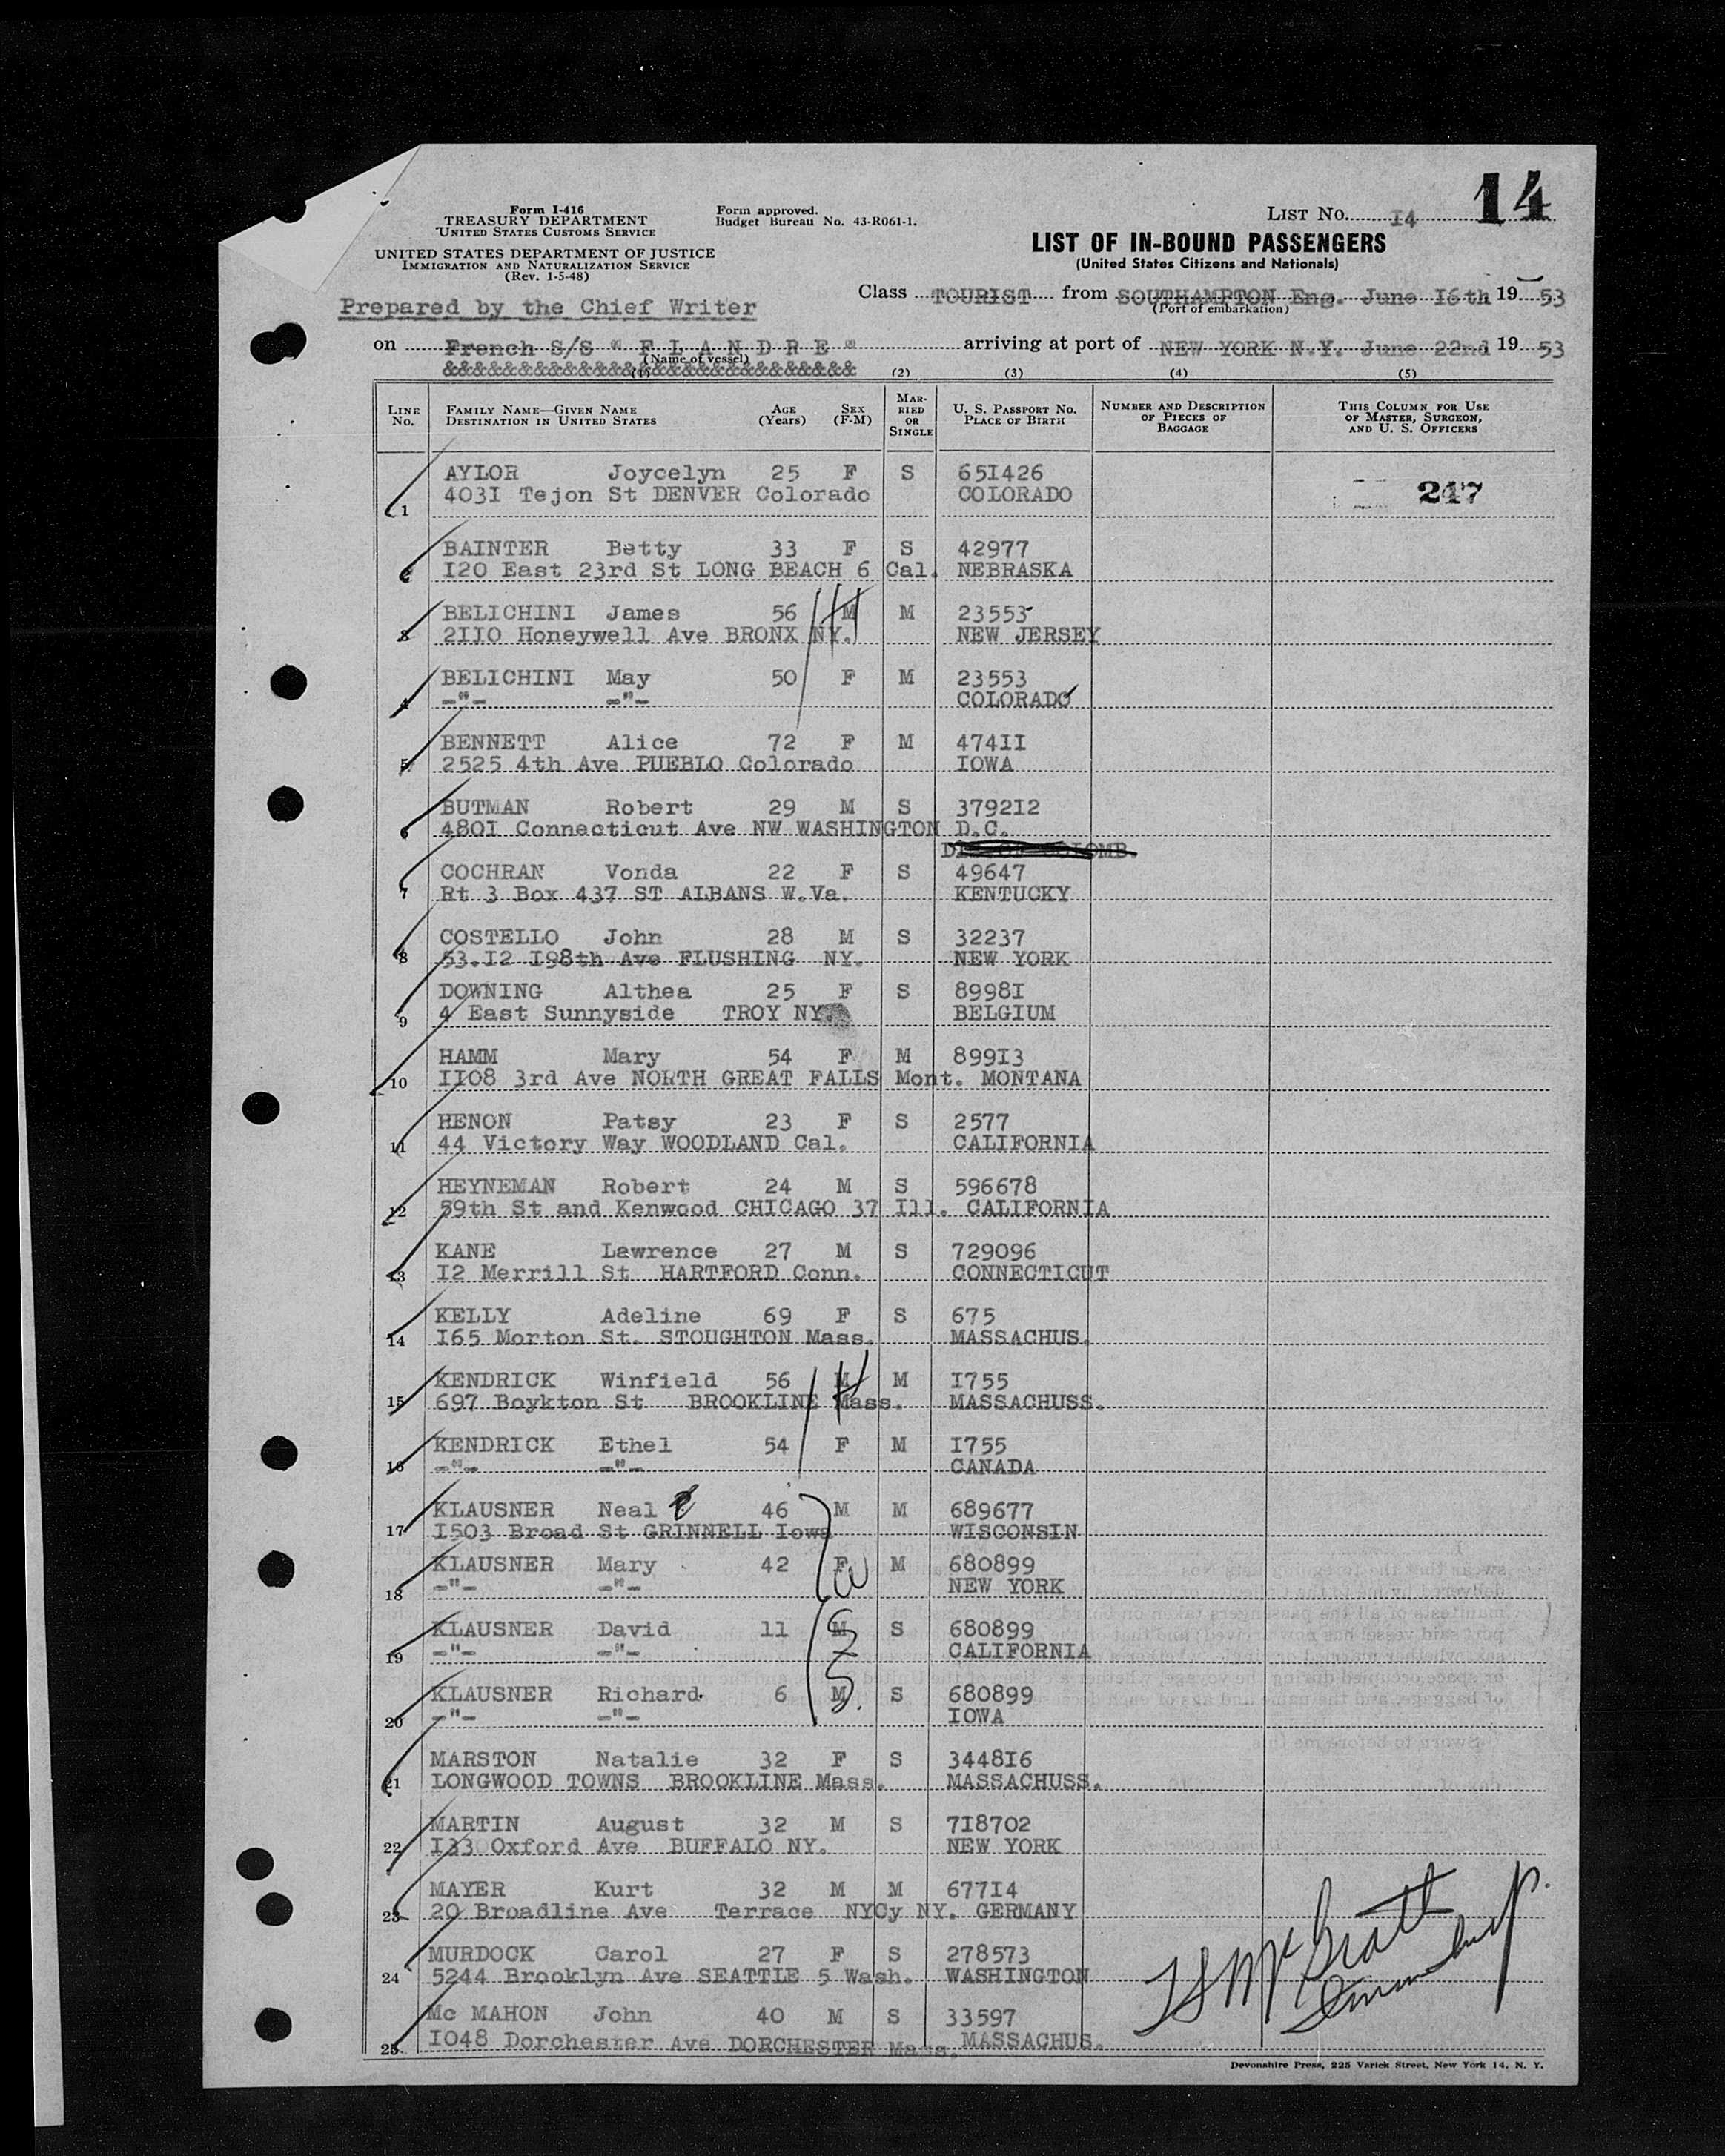 14
Form I-416
TREASURY DEPARTMENT
UNITED STATES CUSTOMS SERVICE
Form approved.
Budget Bureau No. 43-R061-1.
LIST No. I4
UNITED STATES DEPARTMENT OF JUSTICE
IMMIGRATION AND NATURALIZATION SERVICE
(Rev. 1-5-48)
LIST OF IN-BOUND PASSENGERS
(United States Citizens and Nationals)
Prepared by the Chief Writer
Class TOURIST from SOUTHAMPTON Eng. June I6th 19 53
(Port of embarkation)
on French S/S " F L A N D R E " arriving at port of NEW YORK N.Y. June 22nd 19 53
(Name of vessel)
&&&&&&&&&&&&&&&&&&&&&&&&&&&&&&&
(1) (2) (3) (4) (5)
LINE No. FAMILY NAME—GIVEN NAME DESTINATION IN UNITED STATES AGE (Years) SEX (F-M) MARRIED OR SINGLE U. S. PASSPORT No. PLACE OF BIRTH NUMBER AND DESCRIPTION OF PIECES OF BAGGAGE THIS COLUMN FOR USE OF MASTER, SURGEON, AND U. S. OFFICERS
AYLOR Joycelyn 25 F S 65I426
1 403I Tejon St DENVER Colorado COLORADO 247
BAINTER Betty 33 F S 42977
2 I20 East 23rd St LONG BEACH 6 Cal. NEBRASKA
BELICHINI James 56 M M 23553
3 2II0 Honeywell Ave BRONX NY. NEW JERSEY
BELICHINI May 50 F M 23553
4 -"- -"- COLORADO
BENNETT Alice 72 F M 474II
5 2525 4th Ave PUEBLO Colorado IOWA
BUTMAN Robert 29 M S 3792I2
6 480I Connecticut Ave NW WASHINGTON D.C.
COCHRAN Vonda 22 F S 49647
7 Rt 3 Box 437 ST ALBANS W.Va. KENTUCKY
COSTELLO John 28 M S 32237
8 53.I2 I98th Ave FLUSHING NY. NEW YORK
DOWNING Althea 25 F S 8998I
9 4 East Sunnyside TROY NY. BELGIUM
HAMM Mary 54 F M 899I3
10 II08 3rd Ave NORTH GREAT FALLS Mont. MONTANA
HENON Patsy 23 F S 2577
11 44 Victory Way WOODLAND Cal. CALIFORNIA
HEYNEMAN Robert 24 M S 596678
12 59th St and Kenwood CHICAGO 37 Ill. CALIFORNIA
KANE Lawrence 27 M S 729096
13 I2 Merrill St HARTFORD Conn. CONNECTICUT
KELLY Adeline 69 F S 675
14 I65 Morton St. STOUGHTON Mass. MASSACHUS.
KENDRICK Winfield 56 M M I755
15 697 Boykton St BROOKLINE Mass. MASSACHUSS.
KENDRICK Ethel 54 F M I755
16 -"- -"- CANADA
KLAUSNER Neal 46 M M 689677
17 I503 Broad St GRINNELL Iowa WISCONSIN
KLAUSNER Mary 42 F M 680899
18 -"- -"- NEW YORK
KLAUSNER David 11 M S 680899
19 -"- -"- CALIFORNIA
KLAUSNER Richard. 6 M S 680899
20 -"- -"- IOWA
MARSTON Natalie 32 F S 3448I6
21 LONGWOOD TOWNS BROOKLINE Mass. MASSACHUSS.
MARTIN August 32 M S 7I8702
22 I33 Oxford Ave BUFFALO NY. NEW YORK
MAYER Kurt 32 M M 677I4
23 20 Broadline Ave Terrace NYCy NY. GERMANY
MURDOCK Carol 27 F S 278573
24 5244 Brooklyn Ave SEATTLE 5 Wash. WASHINGTON
Mc MAHON John 40 M S 33597
25 I048 Dorchester Ave DORCHESTER Mass. MASSACHUS.
Devonshire Press, 225 Varick Street, New York 14, N. Y.